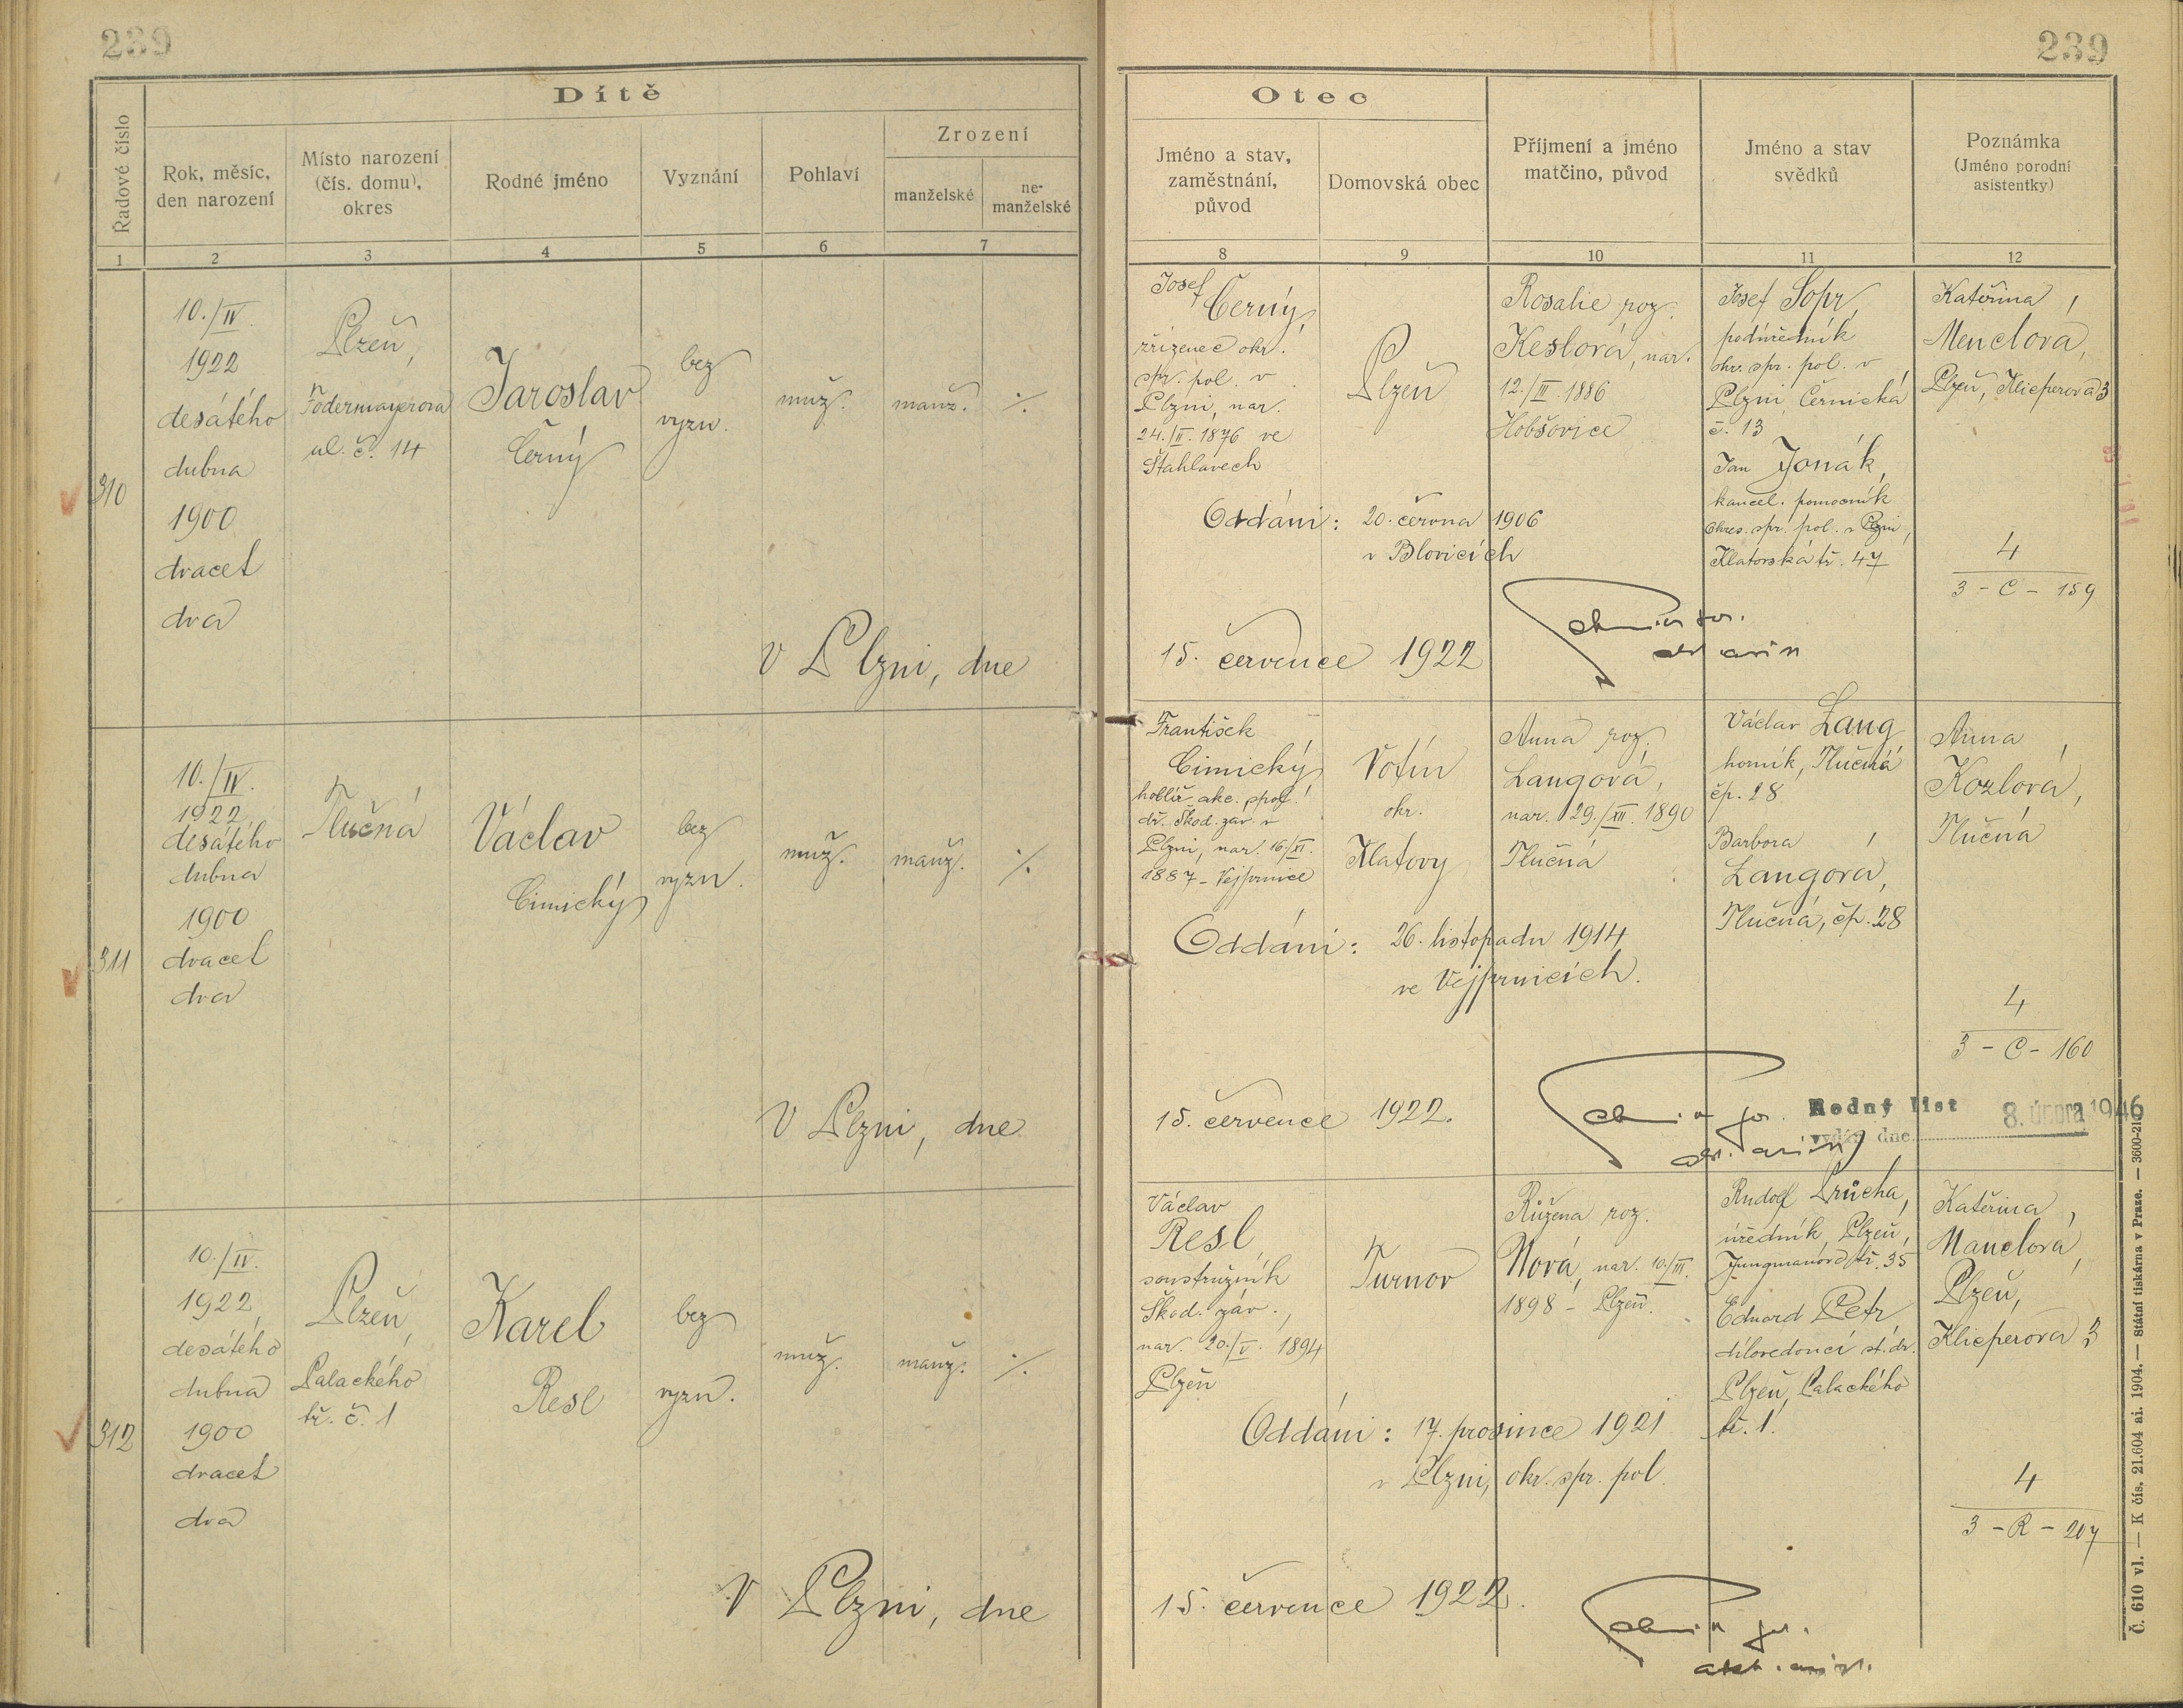 239
239
Dítě
Řadové číslo
Rok, měsíc,
den narození
Místo narození
(čís. domu),
okres
Rodné jméno
Vyznání
Pohlaví
Zrození
manželské
ne-
manželské
1
2
3
4
5
6
7
Otec
Jméno a stav,
zaměstnání,
původ
Domovská obec
Příjmení a jméno
matčino, původ
Jméno a stav
svědků
Poznámka
(Jméno porodní
asistentky)
8
9
10
11
12
310
10./IV.
1922
desátého
dubna
1900
dvacet
dva
Plzeň,
Födermayerova
ul. č. 14
Jaroslav
Černý
bez
vyzn.
muž.
manž.
./.
V Plzni, dne
Josef
Černý,
zřízenec okr.
spr. pol. v
Plzni, nar.
24./II. 1876 ve
Šťahlavech
Plzeň
Rosalie roz.
Keslová, nar.
12./III. 1886
Hobšovice
Josef Šopr,
podúředník
okr. spr. pol. v
Plzni, Černická
č. 13
Jan Jonák,
kancel. pomocník
okres. spr. pol. v Plzni,
Klatovská tř. 47
Kateřina
Menclová,
Plzeň, Klicperova 3
Oddáni: 20. června 1906
v Blovicích
4
3 - C - 159
15. července 1922
311
10./IV.
1922
desátého
dubna
1900
dvacet
dva
Tlučná
Václav
Cimický
bez
vyzn.
muž.
manž.
./.
V Plzni, dne
František
Cimický
hoblíř akc. spol.
dř. Škod. záv. v
Plzni, nar. 16/XI.
1887 - Vejprnice
Votín
okr.
Klatovy
Anna roz.
Langová,
nar. 29./XII. 1890
Tlučná
Václav Lang
horník, Tlučná
čp. 28
Barbora
Langová,
Tlučná, čp. 28
Anna
Kozlová,
Tlučná
Oddáni: 26. listopadu 1914
ve Vejprnicích.
4
3 - C - 160
15. července 1922.
Rodný list
vydán dne 8. února 1946
312
10./IV.
1922,
desátého
dubna
1900
dvacet
dva
Plzeň,
Palackého
tř. č. 1
Karel
Resl
bez
vyzn.
muž.
manž.
./.
V Plzni, dne
Václav
Resl
soustružník
Škod. záv.,
nar. 20./V. 1894
Plzeň
Turnov
Růžena roz.
Nová, nar. 10./III.
1898 - Plzeň.
Rudolf Průcha,
úředník, Plzeň,
Jungmanova tř. 35
Eduard Petr,
dílovedoucí st. dr.
Plzeň, Palackého
tř. 1.
Kateřina
Manclová,
Plzeň,
Klicperova 3
Oddáni: 17. prosince 1921
v Plzni, okr. spr. pol.
4
3 - R - 207
15. července 1922.
Č. 610 vl. — K čís. 21.604 ai. 1904. — Státní tiskárna v Praze. — 3600-21.